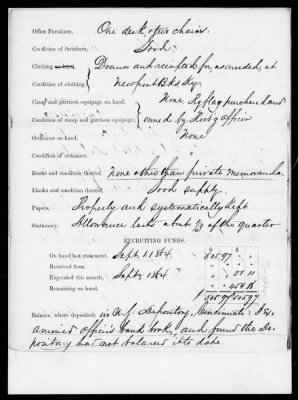 Office Furniture, One desk, four chairs.
Condition of furniture, Good.
Clothing on hand, Drawn and receipted for, as needed, at
Condition of clothing, Newport Bks Ky.
Camp and garrison equipage on hand, None. Rg flag purchased and
Condition of camp and garrison equipage, owned by Rectg Officer
Ordnance on hand, None
Condition of ordnance,
Books and condition thereof, None other than private memoranda.
Blanks and condition thereof, Good supply.
Papers, Properly and systematically kept
Stationery, Allowance lasts about 1/3 of the quarter
RECRUITING FUNDS.
On hand last statement, Sept. 1 1864 505 97
Received from
Expended this month, Sept. 1864 51 11
Remaining on hand, 454 86
$ 505 97 505 97
Balance, where deposited, in U.S. Depository, Cincinnati: I Ex-
amined officer's bank book, and found the De-
pository has not balanced it to date